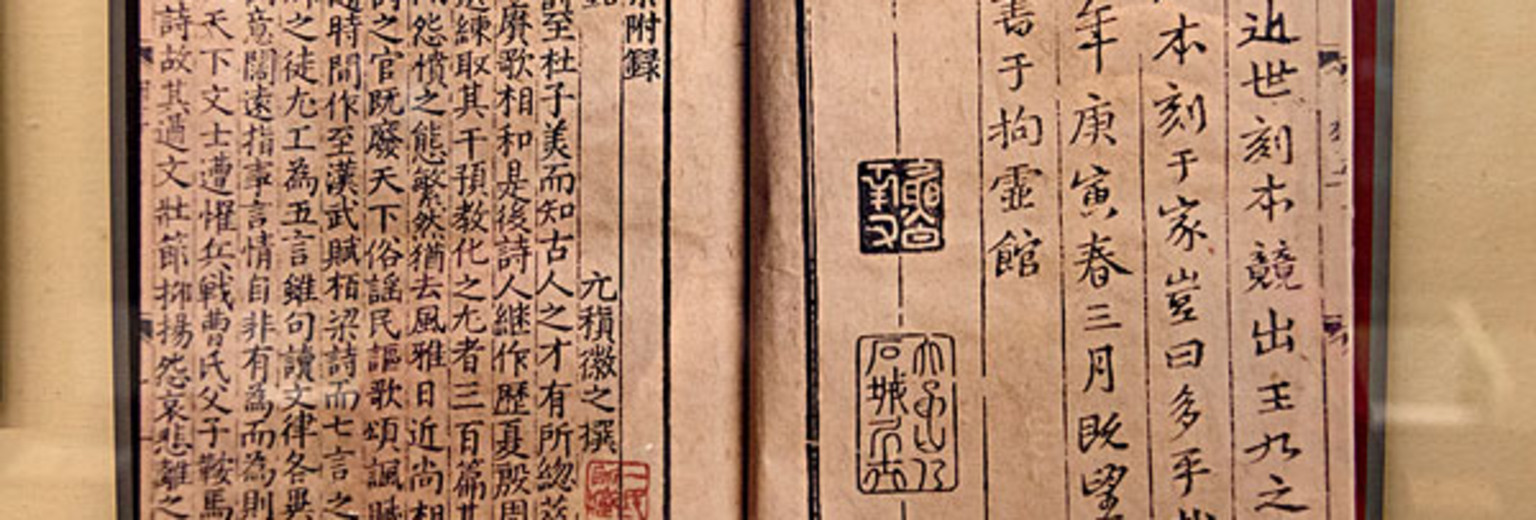 近世刻本競出王九之
本刻于家豈曰多乎哉
年庚寅春三月既望
書于拘靈館
附録
元稹微之撰
至杜子美而知古人之才有所総萃
賡歌相和是後詩人継作歷夏殷周
選練取其干預教化之尤者三百篇其
怨憤之態繁然猶去風雅日近尚相
詩之官既廢天下俗謡民謳歌頌諷賦
随時間作至漢武賦栢梁詩而七言之
之徒尤工為五言雖句讀文律各異
意闊遠指事言情自非有為而為則
天下文士遭懼兵戦曹氏父子鞍馬
詩故其遒文壯節抑揚怨哀悲離之